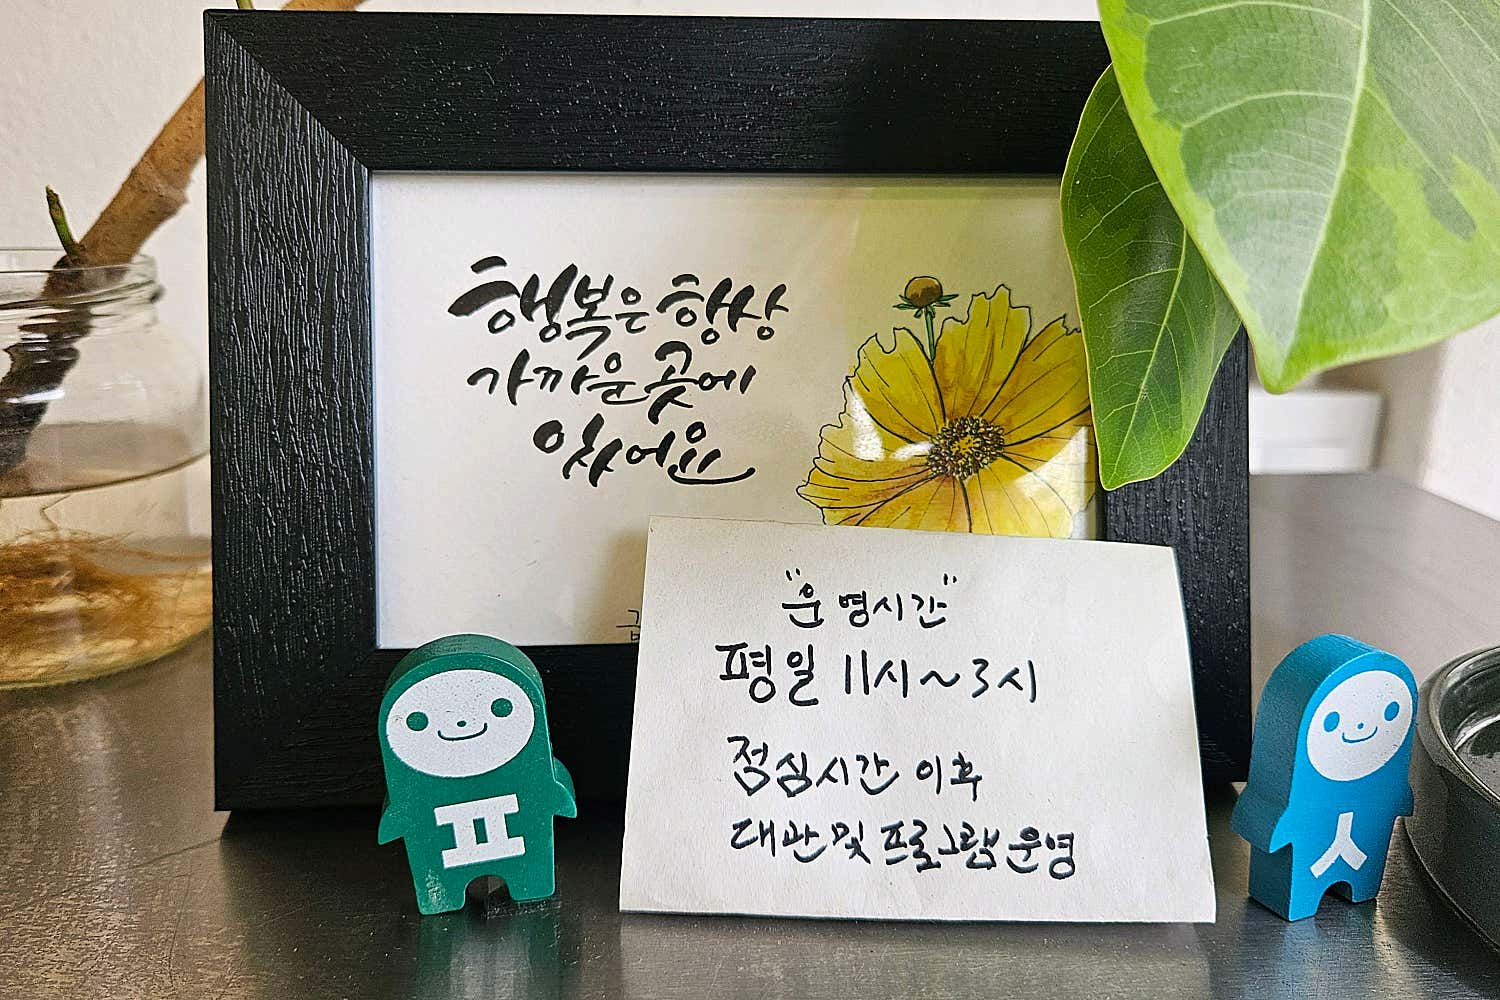 행복은 항상
가까운 곳에
있어요
"운영시간"
평일 11시~3시
점심시간 이후
대관 및 프로그램 운영
ㅍ
ㅅ